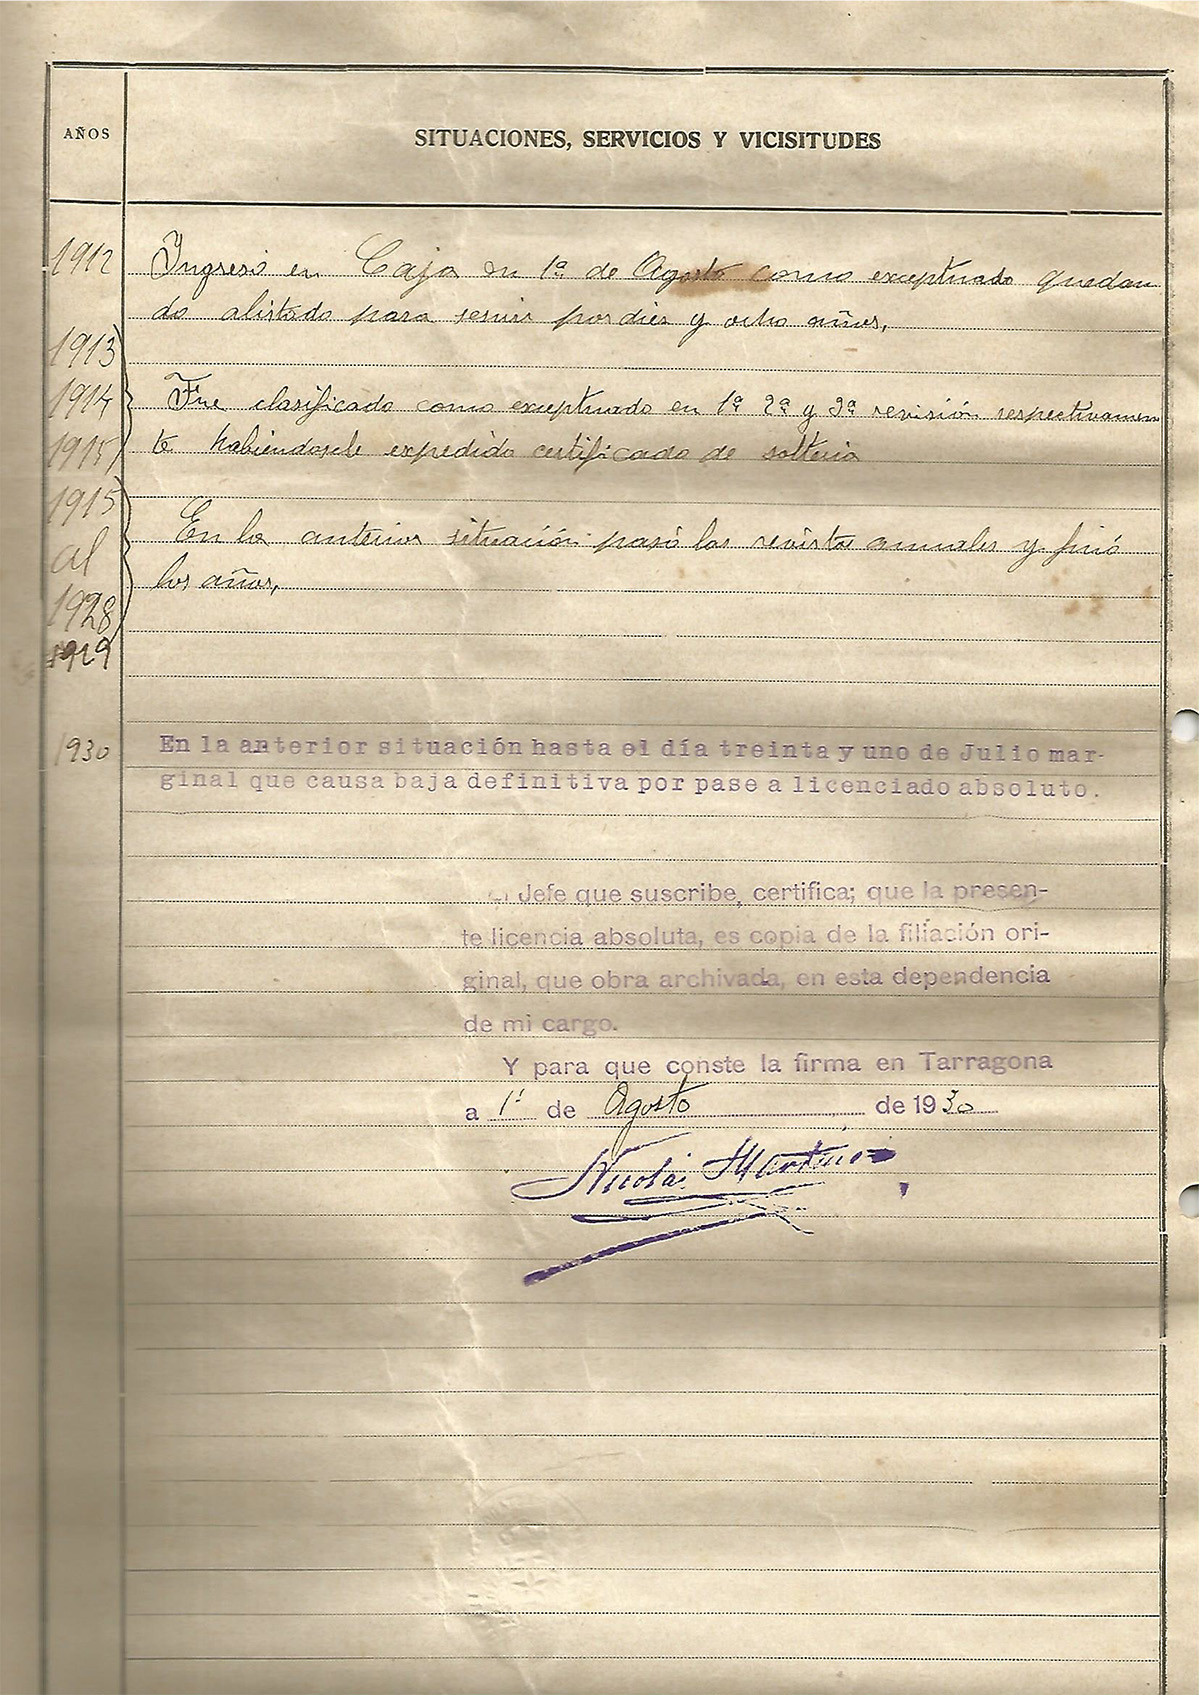 AÑOS
SITUACIONES, SERVICIOS Y VICISITUDES
1912 Ingresó en Caja en 1º de Agosto como exceptuado quedan
do alistado para servir por diez y ocho años,
1913
1914 Fue clasificado como exceptuado en 1ª 2ª y 3ª revisión respectivamen
1915 te habiéndosele expedido certificado de solteria
1915
al En la anterior situación pasó las revistas anuales y finó
los años,
1928
1929
1930 En la anterior situación hasta el día treinta y uno de Julio mar-
ginal que causa baja definitiva por pase a licenciado absoluto.
Jefe que suscribe, certifica; que la presen-
te licencia absoluta, es copia de la filiación ori-
ginal, que obra archivada, en esta dependencia
de mi cargo.
Y para que conste la firma en Tarragona
a 1º de Agosto de 1930
Nicolás Martínez